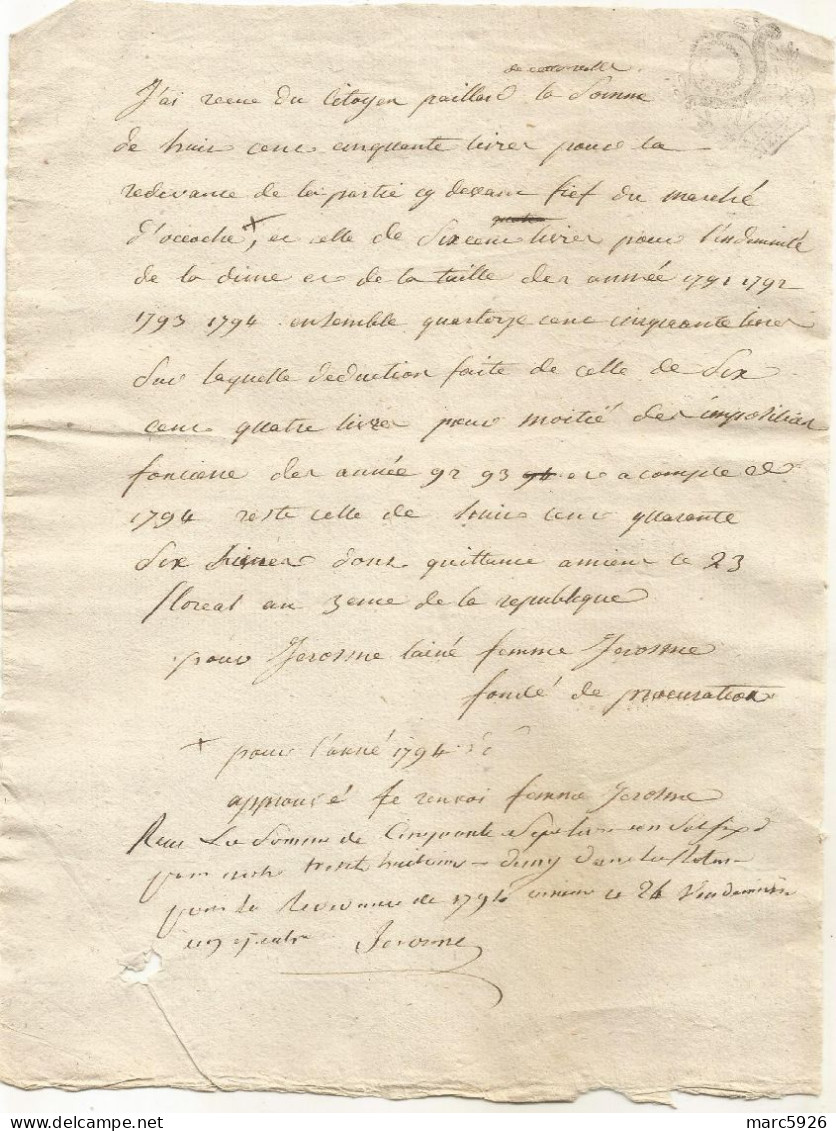 J'ai recue du Citoyen paillard la Somme
de huit cent cinquante livres pour la
redevance de la partie cy devant fief du marché
d'occoche +, et celle de Six cent livres pour l'indemnité
de la dime et de la taille des année 1791 1792
1793 1794 ensemble quatorze cent cinquante livres
Sur laquelle deduction faite de celle de Six
cent quatre livres pour moitié des imposition
fonciere des année 92 93 94 et acompte de
1794 reste celle de huit cent quarante
Six livres dont quittance amiens ce 23
floreal an 3eme de la republique
pour Jerosme lainé femme Jerosme
fondé de procuration
+ pour l'anné 1794
approuvé le renvoi femme Jerosme
Recu La Somme de Cinquante Sept livres
pour
pour La Redevance de 1794 amiens ce 26 Vendemiaire
Jerosme
marc5926